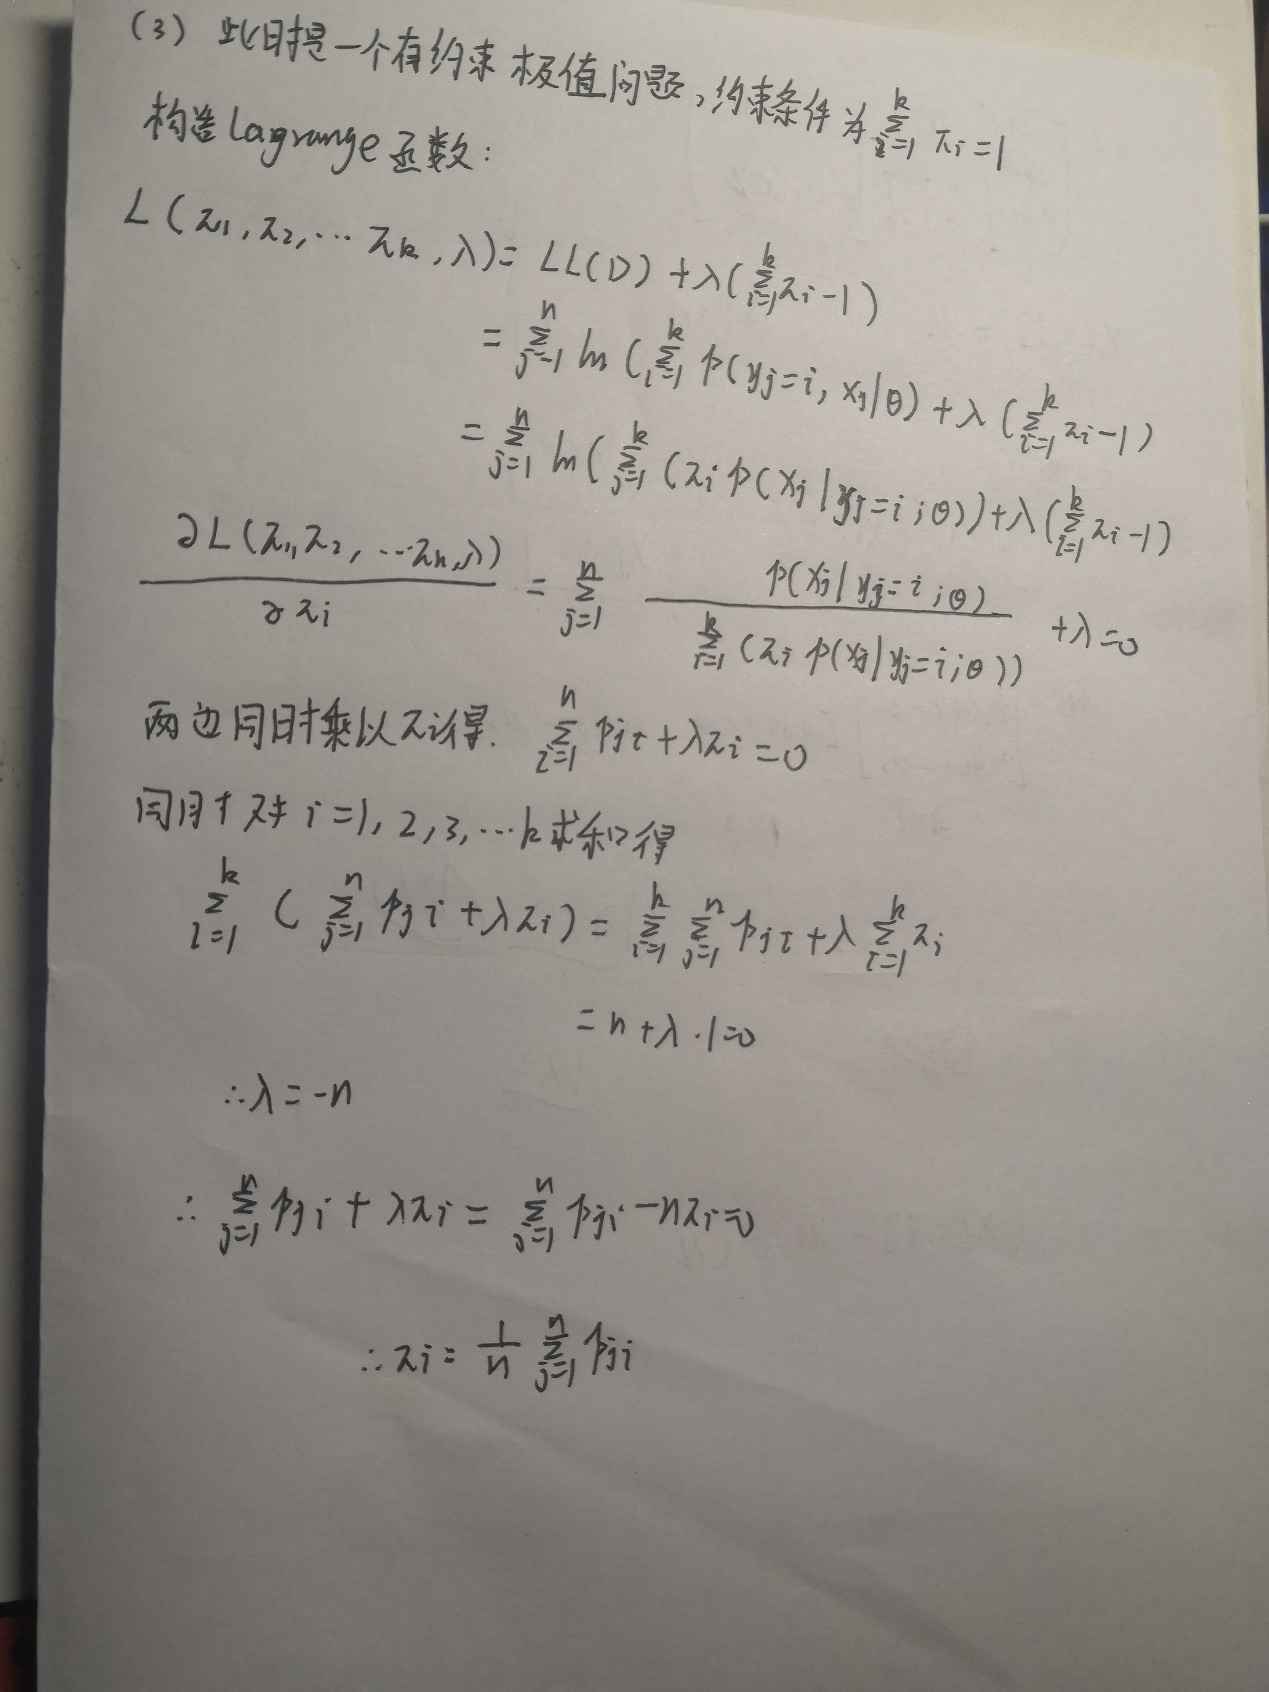 (3) 此时是一个有约束极值问题,约束条件为 k∑i=1 πi=1
构造Lagrange函数:
L(π1,π2,…πk,λ)= LL(D)+λ(k∑i=1 πi-1)
= n∑j=1 ln(k∑i=1 p(yj=i, xj|θ)+λ(k∑i=1 πi-1)
= n∑j=1 ln(k∑j=1 (πi p(xj|yj=i;θ))+λ(k∑i=1 πi-1)
∂L(π1,π2,…πn,λ)/∂πi = n∑j=1 p(xj|yj=i;θ)/k∑i=1(πi p(xj|yj=i;θ)) +λ=0
两边同时乘以πi得. n∑i=1 pji+λπi=0
同时对 i=1,2,3,…k求和得
k∑i=1 (n∑j=1 pji+λπi)= k∑i=1 n∑j=1 pji+λ k∑i=1 πi
=n+λ·1=0
∴λ=-n
∴ n∑j=1 pji+λπi= n∑j=1 pji-nπi=0
∴πi= 1/n n∑j=1 pji